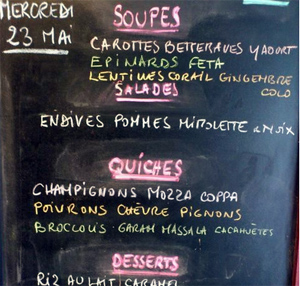 MERCREDI
23 MAI
SOUPES
CAROTTES BETTERAVES YAOURT
EPINARDS FETA
LENTILLES CORAIL GINGEMBRE
COCO
SALADES
ENDIVES POMMES MIMOLETTE & NOIX
QUICHES
CHAMPIGNONS MOZZA COPPA
POIVRONS CHÈVRE PIGNONS
BROCCOLIS GARAM MASSALA CACAHUÈTES
DESSERTS
RIZ AU LAIT CARAMEL